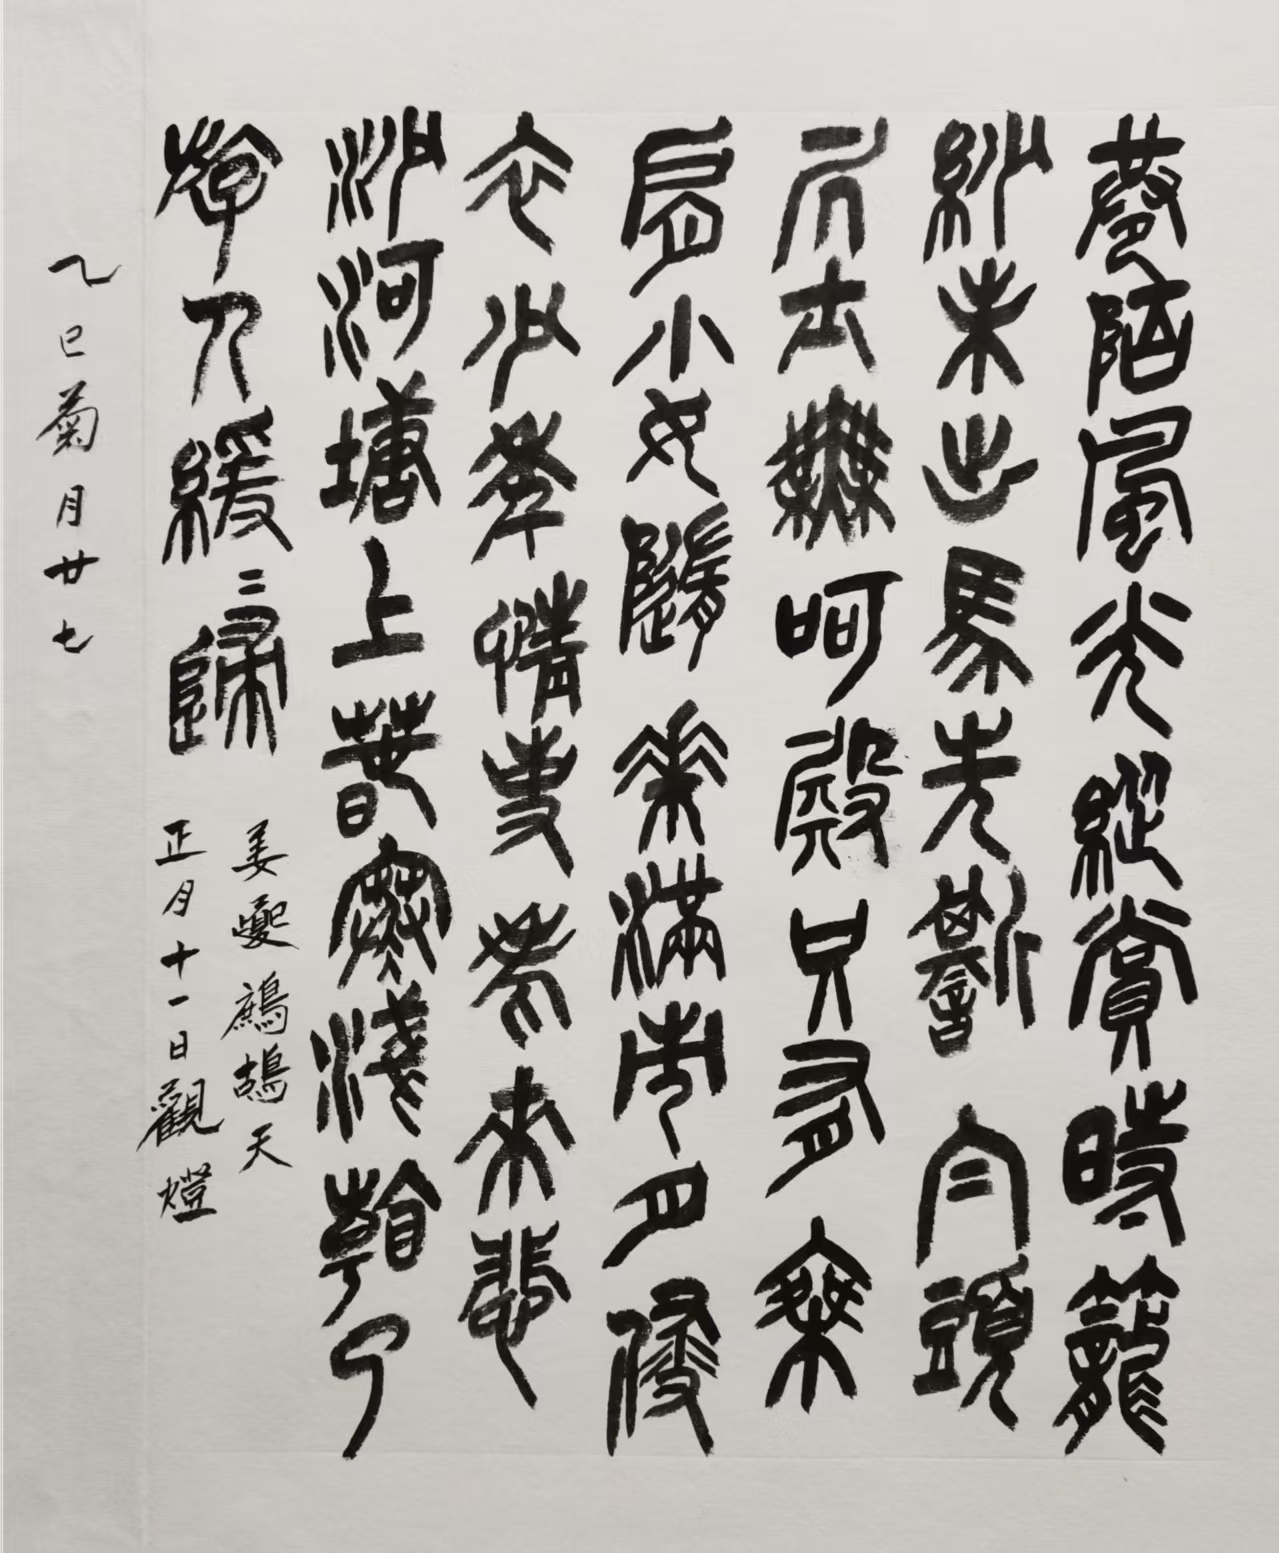 巷陌風光縱賞時籠
紗未出馬先嘶白頭
居士無呵殿只有乘
肩小女隨花滿市月侵
衣少年情事老來悲
沙河塘上春寒淺看了
游人緩〻歸
姜夔鷓鴣天
正月十一日觀燈
乙巳菊月廿七